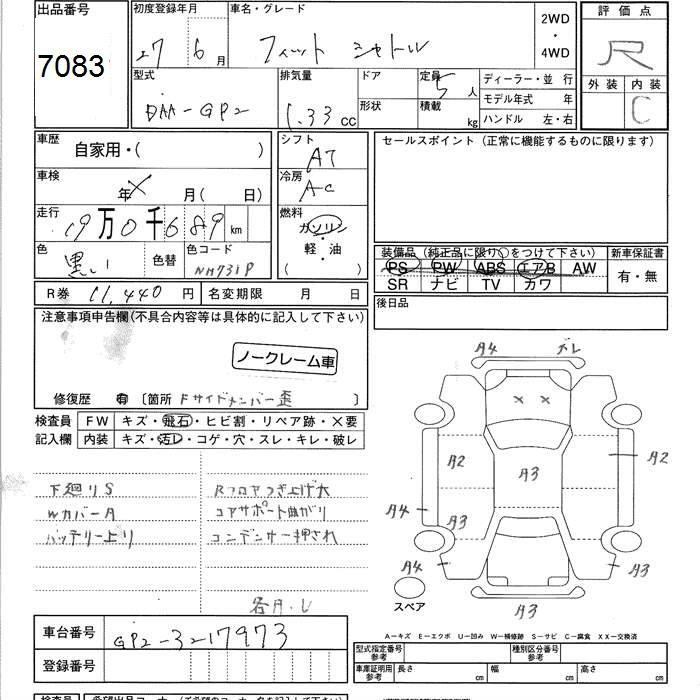 出品番号 初度登録年月 車名・グレード 2WD・4WD 評価点
7083 27 6月 フィット シャトル R
型式 排気量 ドア 定員 5人 ディーラー・並行 外装 内装
DAA-GP2 1.33cc 形状 積載 kg モデル年式 年 C
ハンドル 左・右
車歴 自家用・( ) シフト AT セールスポイント (正常に機能するものに限ります)
車検 年 X 月( 日) 冷房 AC
走行 19万0千689km 燃料 ガソリン・軽・油 ( )
色 黒い 色替 色コード NH731P
装備品 (純正品に限り○をつけて下さい) 新車保証書
PS PW ABS エアB AW 有・無
SR ナビ TV カワ
R券 11,440円 名変期限 月 日 後日品
注意事項申告欄(不具合内容等は具体的に記入して下さい)
ノークレーム車
修復歴 有 〔箇所 Fサイドメンバー歪 〕
検査員 FW キズ・飛石・ヒビ割・リペア跡・×要
記入欄 内装 キズ・汚レ・コゲ・穴・スレ・キレ・破レ
下廻りS Rフロアつき上げ大
WカバーA コアサポート曲がり
バッテリー上り コンデンサー押され
各A・U
A4 ズレ
× ×
A2 A3 A2
A4 A3
A4 A3 A4
スペア
A3
車台番号 GP2-3217973
登録番号
A-キズ E-エクボ U-凹み W-補修跡 S-サビ C-腐食 XX-交換済
型式指定番号 参考 種別区分番号 参考
車庫証明用 参考 長さ cm 幅 cm 高さ cm
検査員 希望出品コーナー(ご希望のコーナー名を記入して下さい)